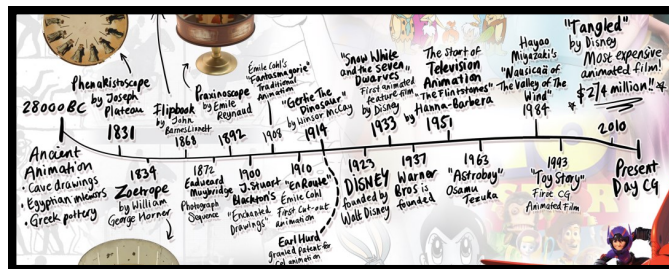 28000 BC
Ancient
Animation
• Cave drawings
• Egyptian
• Greek pottery
Phenakistoscope
by Joseph
Plateau
1831
1834
Zoetrope
by William
George Horner
Flipbook
by John
Barnes Linnett
1868
1872
Eadweard
Muybridge
Photograph
Sequence
Praxinoscope
by Emile
Reynaud
1892
1900
J. Stuart
Blackton's
"Enchanted
Drawings"
Emile Cohl's
"Fantasmagorie"
Traditional
Animation
1908
1910
"En Route"
Emile Cohl
First Cut-out
animation
"Gertie The
Dinosaur"
by Winsor McCay
1914
Earl Hurd
granted patent for
Cel animation
1923
DISNEY
founded by
Walt Disney
"Snow White
and the seven
Dwarves"
First animated
feature film
by Disney
1933
1937
Warner
Bros is
founded
The Start of
Television
Animation
"The Flintstones"
by Hanna-Barbera
1951
1963
"Astroboy"
Osamu
Tezuka
Hayao
Miyazaki's
"Nausicaä of
The Valley of The
Wind"
1984
1993
"Toy Story"
First CG
Animated Film
"Tangled"
by Disney
Most expensive
animated film!
2010
Present
Day CG